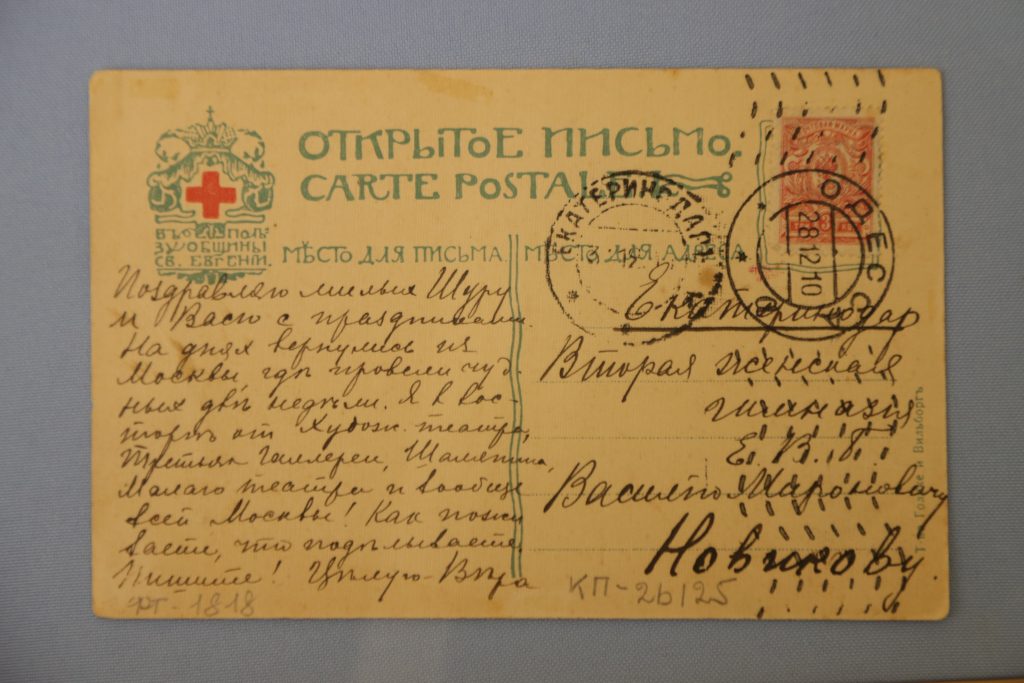 ОТКРЫТОЕ ПИСЬМО.
CARTE POSTALE
ВЪ ПОЛЬ
ЗУ ОБЩИНЫ
СВ. ЕВГЕНІИ.
МѢСТО ДЛЯ ПИСЬМА
МѢСТО ДЛЯ АДРЕСА
ЕКАТЕРИНОДАРЪ
ОДЕССА
28 12 10
Поздравляю милых Шуру
и Васю с праздниками.
На днях вернулись из
Москвы, гдѣ провели чуд-
ных двѣ недѣли. Я в вос-
торгѣ от Худож. театра,
Третьяк. Галлереи, Шаляпина,
Малаго театра и вообще
всей Москвы! Как пожи
ваете, что подѣлываете.
Пишите! Цѣлую Вѣра
Екатеринодар
Вторая женская
гимназія
Е. В. Б.
Василію Мироновичу
Новикову.
Голике и Вильборгъ
ФТ-1818
КП-26125